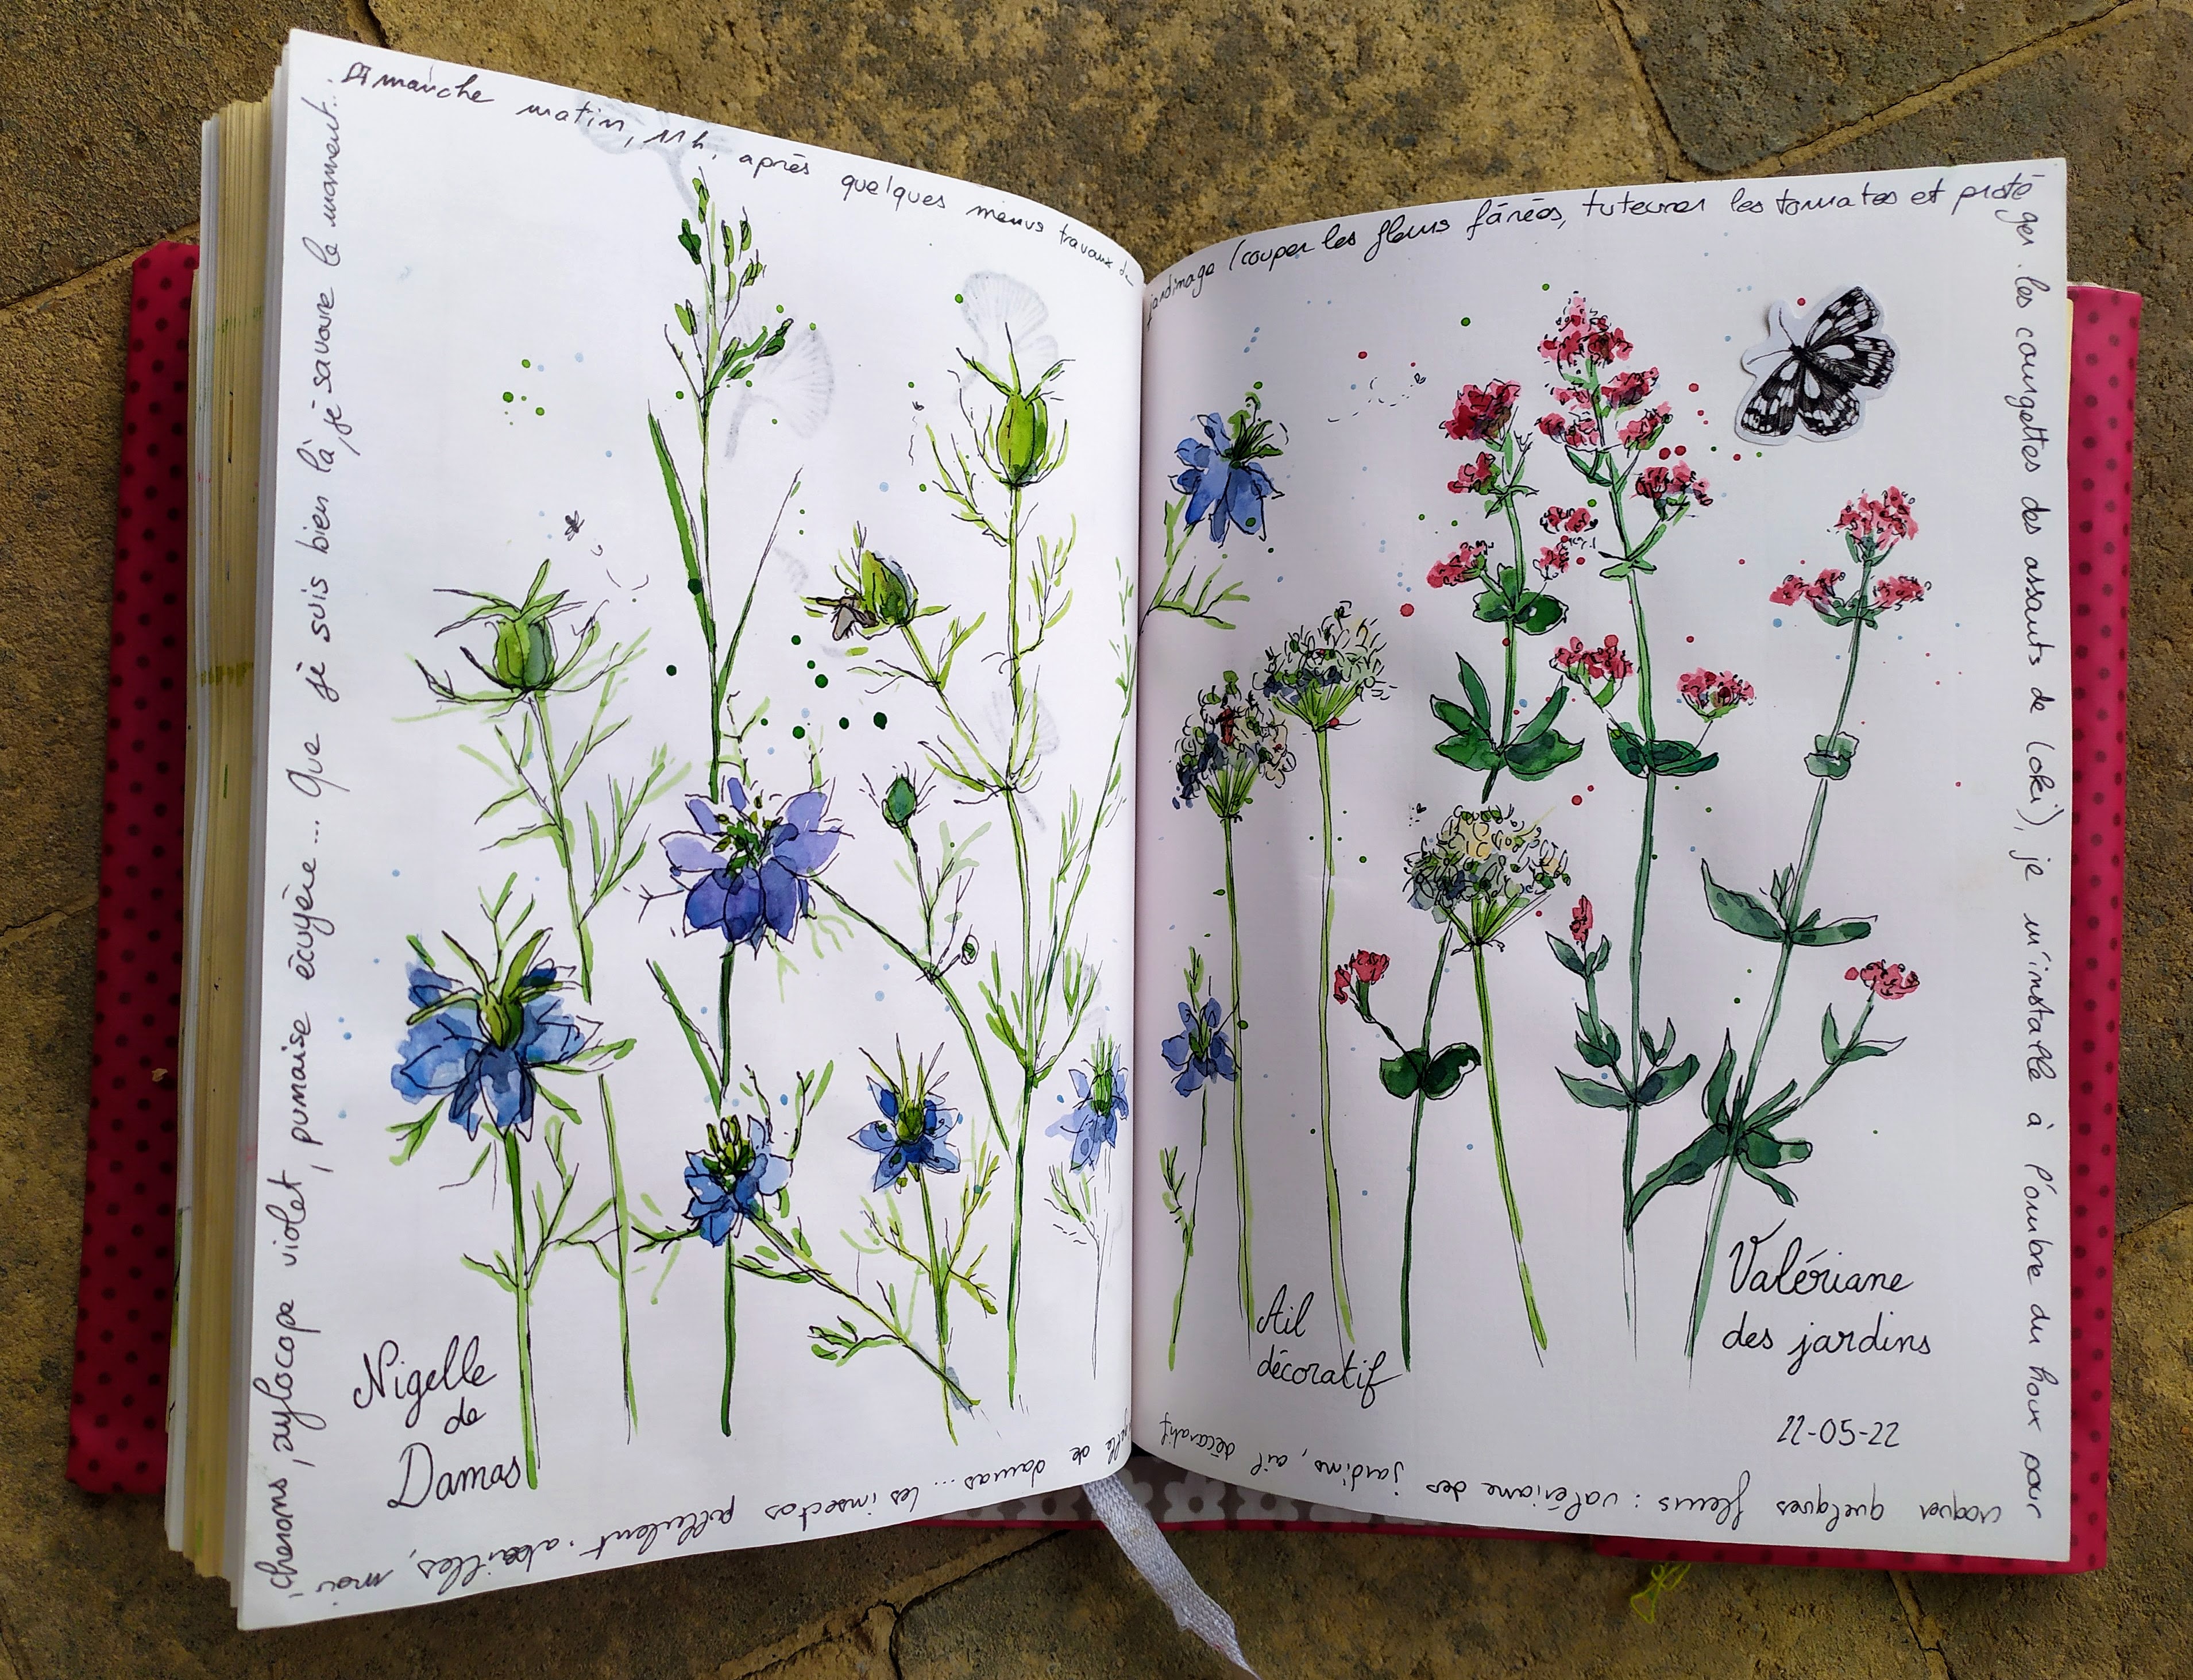 Dimanche matin, 11h, après quelques menus travaux de
jardinage (couper les fleurs fânées, tuteurer les tomates et proté
ger les courgettes des assauts de Loki), je m'installe à l'ombre du houx pour
croquer quelques fleurs : valériane des jardins, ail décoratif
nigelle de damas... les insectes pullulent. abeilles, moi
cherons, xylocope violet, punaise écuyère... Que je suis bien là, je savoure le moment...
Nigelle
de
Damas
Ail
décoratif
Valériane
des jardins
22-05-22